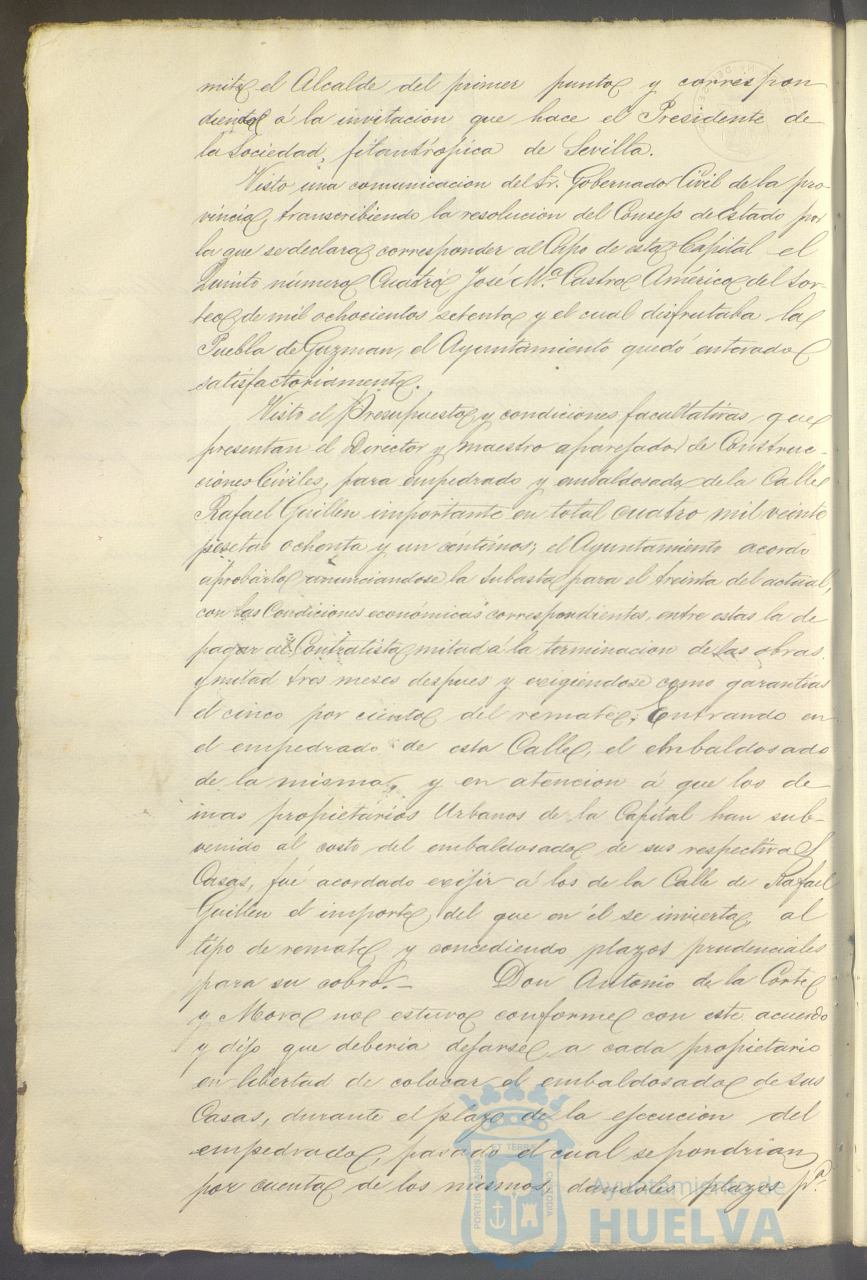 mite el Alcalde del primer punto y correspon
diendo á la invitacion que hace el Presidente de
la Sociedad, filantrópica de Sevilla.
Visto una comunicacion del Sr. Gobernador Civil de la pro-
vincia, transcribiendo la resolucion del Consejo de Estado por
la que se declara corresponder al Cupo de esta Capital el
Quinto número Cuatro José Mª Castro Américo del Sor-
teo de mil ochocientos setenta y el cual disfrutaba la
Puebla de Guzman, el Ayuntamiento quedó enterado
satisfactoriamente.
Visto el Presupuesto y condiciones facultativas que
presentan el Director y Maestro aparejador de Construc-
ciones Civiles, para empedrado y embaldosado de la Calle
Rafael Guillen importante en total cuatro mil veinte
pesetas ochenta y un céntimos; el Ayuntamiento acordó
aprobarlo anunciandose la Subasta para el treinta del actual,
con las Condiciones económicas correspondientes, entre estas la de
pagar al Contratista mitad á la terminacion de las obras
y mitad tres meses despues y exigiendose como garantias
el cinco por ciento del remate. Entrando en
el empedrado de esta Calle, el embaldosado
de la misma, y en atencion á que los de
mas propietarios Urbanos de la Capital han sub-
venido al costo del embaldosado de sus respectivas
Casas, fué acordado exijir á los de la Calle de Rafael
Guillen el importe del que en él se invierta al
tipo de remate y concediendo plazos prudenciales
para su cobro.- Don Antonio de la Corte
y Mora no estuvo conforme con este acuerdo
y dijo que deberia dejarse a cada propietario
en libertad de colocar el embaldosado de sus
Casas, durante el plazo de la ejecucion del
empedrado, pasado el cual se pondrian
por cuenta de los mismos, dandoles plazos pª
PORTUS MARIS
ET TERRÆ
CUSTODIA
Ayuntamiento de
HUELVA